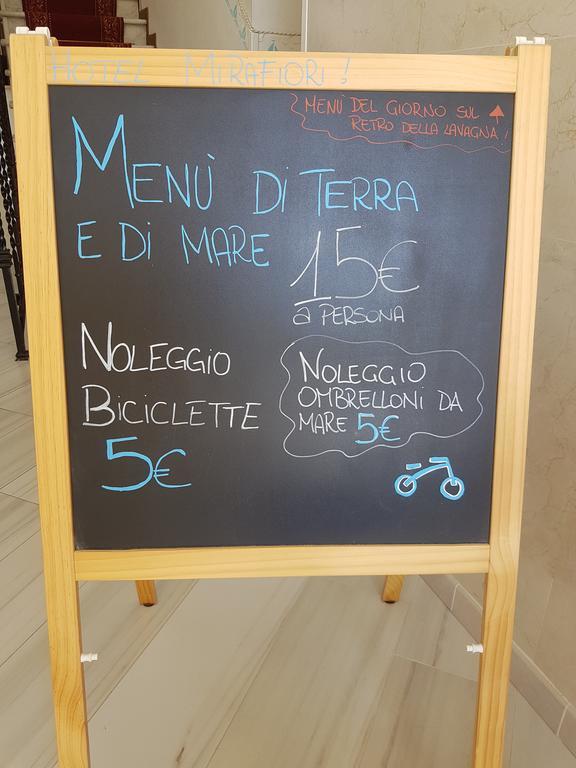 HOTEL MIRAFIORI !
MENÙ DEL GIORNO SUL
RETRO DELLA LAVAGNA!
MENÙ DI TERRA
E DI MARE
15€
a PERSONA
NOLEGGIO
BICICLETTE
5€
NOLEGGIO
OMBRELLONI DA
MARE 5€